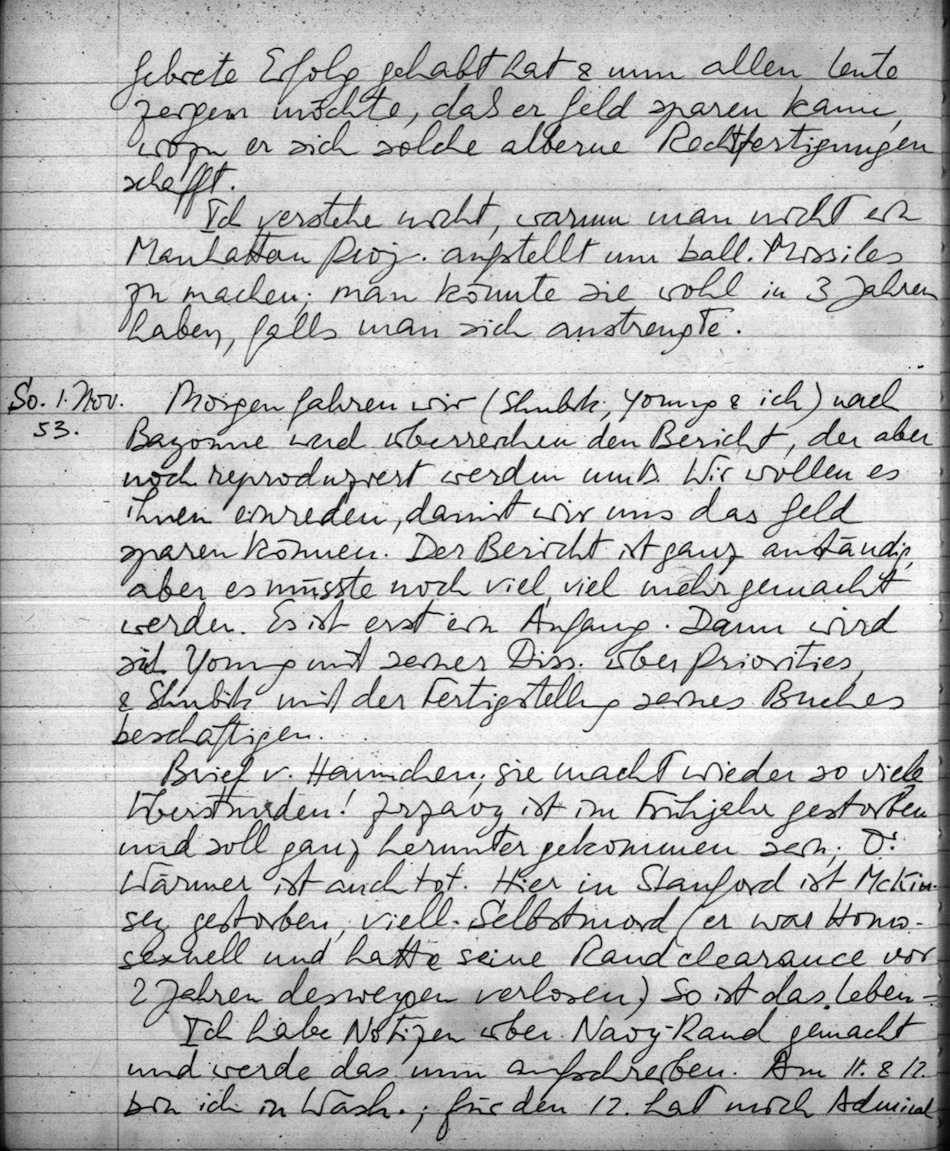 Gebiete Erfolg gehabt hat & nun allen Leute
zeigen möchte, daß er Geld sparen kann,
wozu er sich solche alberne Rechtfertigungen
schafft.
Ich verstehe nicht, warum man nicht ein
Manhattan Proj. aufstellt um ball. Missiles
zu machen; man könnte sie wohl in 3 Jahren
haben, falls man sich anstrengte.
So. 1. Nov. 53.
Morgen fahren wir (Shubik, Young & ich) nach
Bayonne und überreichen den Bericht, der aber
noch reproduziert werden muß. Wir wollen es
ihnen einreden, damit wir uns das Geld
sparen können. Der Bericht ist ganz anständig,
aber es müsste noch viel, viel mehr gemacht
werden. Es ist erst ein Anfang. Dann wird
sich Young mit seiner Diss. über Priorities,
& Shubik mit der Fertigstellg seines Buches
beschäftigen.
Brief v. Hannchen; sie macht wieder so viele
Überstunden! ist im Frühjahr gestorben
und soll ganz heruntergekommen sein; Dr
Wärmer ist auch tot. Hier in Stanford ist McKin-
sey gestorben, viell. Selbstmord (er war Homo-
sexuell und hatte seine Randclearance vor
2 Jahren deswegen verloren) So ist das Leben –
Ich habe Notizen über Navy-Rand gemacht
und werde das nun aufschreiben. Am 11. & 12.
bin ich in Wash.; für den 12. hat mich Admiral